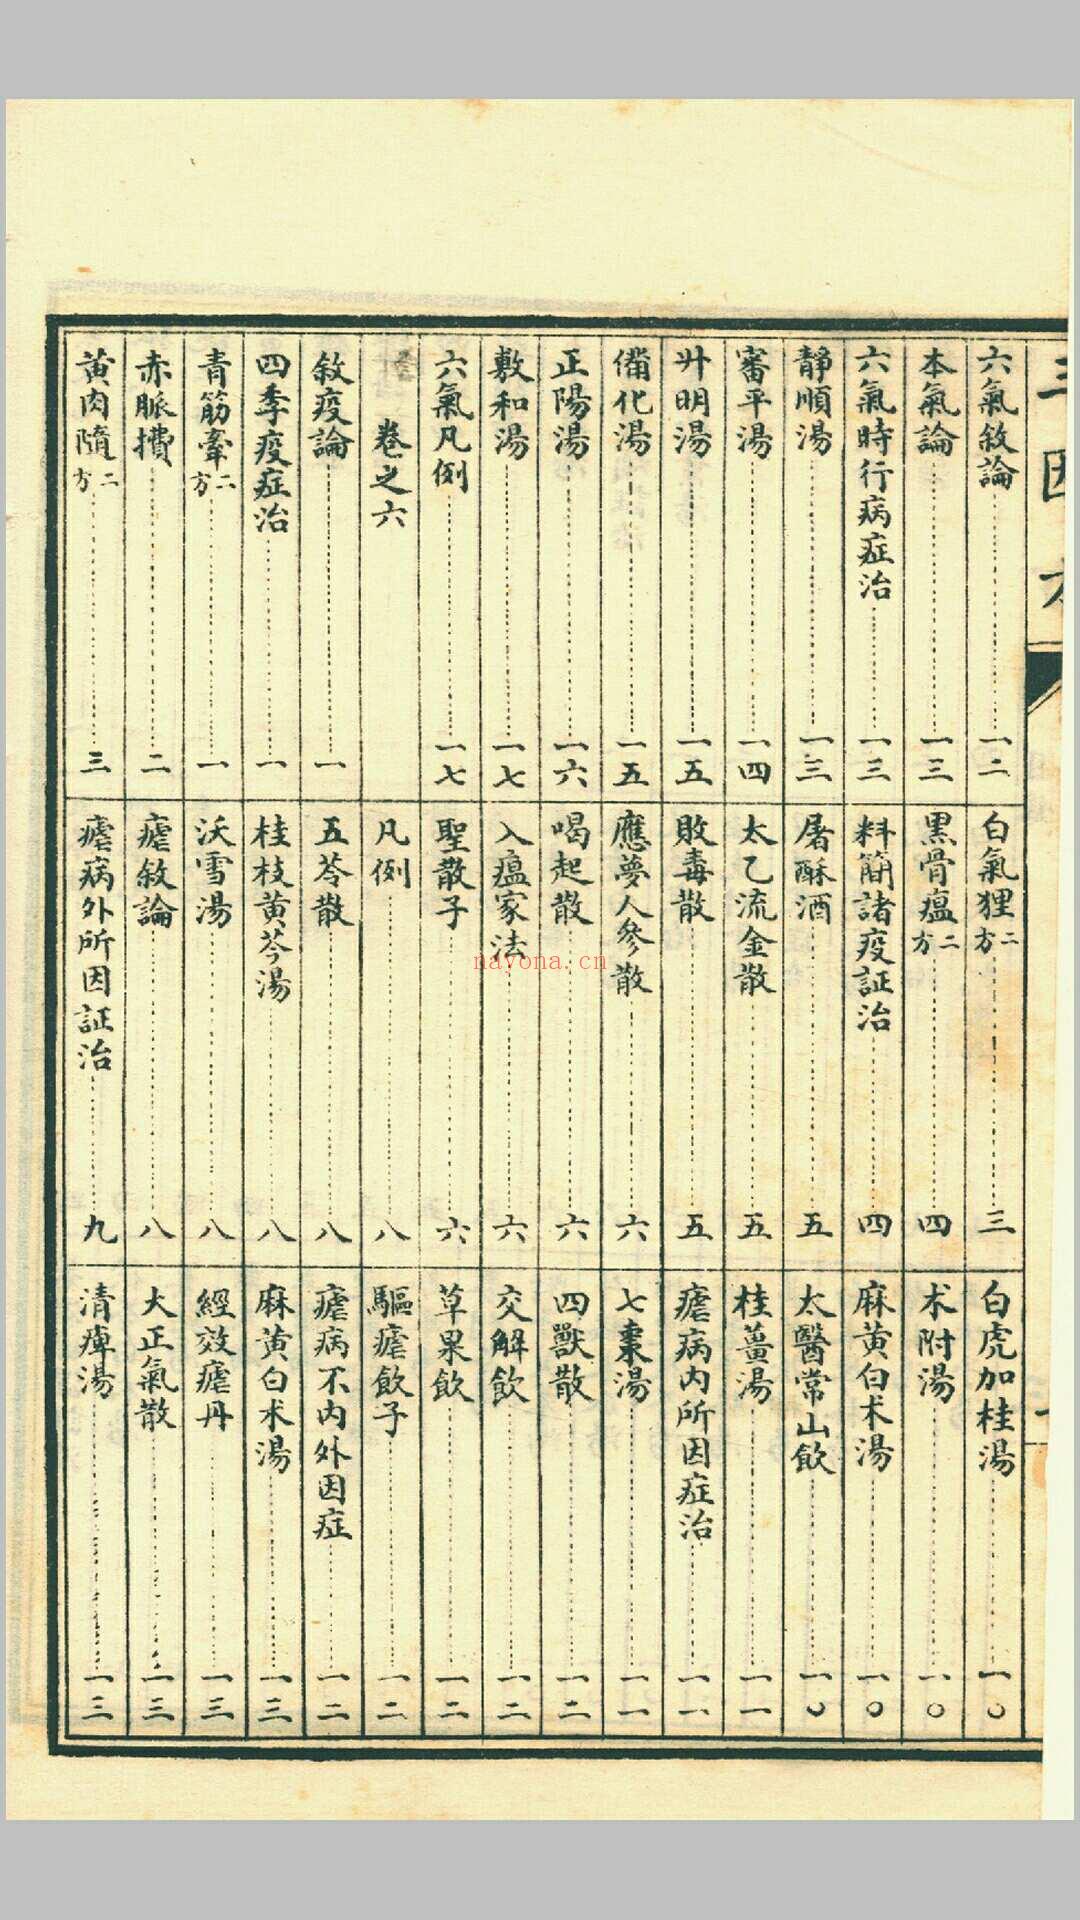 六氣敘論 一二
本氣論 一三
六氣時行病症治 一三
靜順湯 一三
審平湯 一四
升明湯 一五
備化湯 一五
正陽湯 一六
敷和湯 一七
六氣凡例 一七
卷之六
敘疫論 一
四季疫症治 一
青筋牽二方 一
赤脈攢 二
黃肉隨二方 三
白氣狸二方 三
黑骨瘟二方 四
料簡諸疫証治 四
屠酥酒 五
太乙流金散 五
敗毒散 五
應夢人參散 六
喝起散 六
入瘟家法 六
聖散子 六
凡例 八
五苓散 八
桂枝黃芩湯 八
沃雪湯 八
瘧敘論 八
瘧病外所因証治 九
白虎加桂湯 一〇
朮附湯 一〇
麻黃白朮湯 一〇
太醫常山飲 一〇
桂薑湯 一一
瘧病內所因症治 一一
七棗湯 一一
四獸散 一二
交解飲 一二
草果飲 一二
驅瘧飲子 一二
瘧病不內外因症 一二
麻黃白朮湯 一三
經效瘧丹 一三
大正氣散 一三
清痺湯 一三
nayona.cn